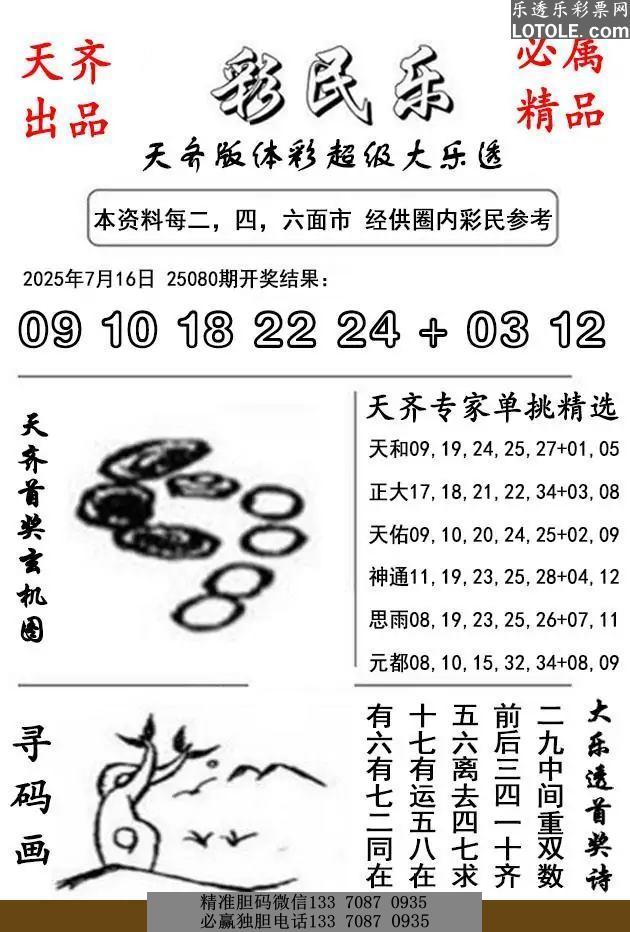 乐透乐彩票网
LOTOLE.COM
天齐
出品
彩民乐
必属
精品
天齐版体彩超级大乐透
本资料每二，四，六面市 经供圈内彩民参考
2025年7月16日 25080期开奖结果：
09 10 18 22 24 + 03 12
天齐首奖玄机图
天齐专家单挑精选
天和09,19,24,25,27+01,05
正大17,18,21,22,34+03,08
天佑09,10,20,24,25+02,09
神通11,19,23,25,28+04,12
思雨08,19,23,25,26+07,11
元都08,10,15,32,34+08,09
寻码画
大乐透首奖诗
二九中间重双数
前后三四一十齐
五六离去四七求
十七有运五八在
有六有七二同在
精准胆码微信133 7087 0935
必赢独胆电话133 7087 0935